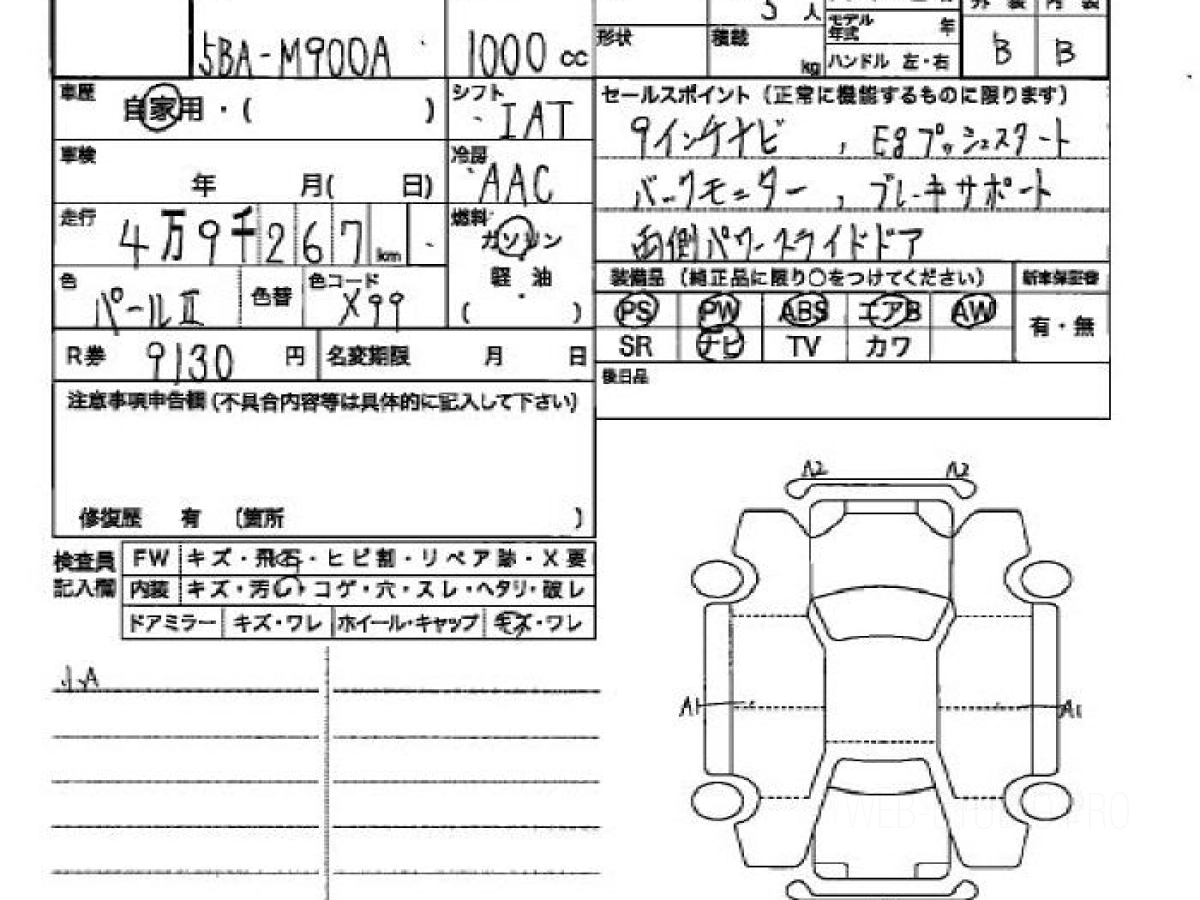 5 人
外装 内装
モデル年式 年
5BA-M900A
1000 cc
形状
積載 kg
ハンドル 左・右
B B
車歴 自家用・( )
シフト IAT
セールスポイント (正常に機能するものに限ります)
9インチナビ , Egプッシュスタート
車検 年 月( 日)
冷房 AAC
バックモニター , ブレーキサポート
走行 4万9千267km
燃料 ガソリン
両側パワースライドドア
軽油
( )
色 パールII 色替 色コード X99
装備品 (純正品に限り○をつけてください) 新車保証書
PS PW ABS エアB AW
有・無
SR ナビ TV カワ
R券 9130 円 名変期限 月 日
後日品
注意事項申告欄 (不具合内容等は具体的に記入して下さい)
修復歴 有 (箇所 )
検査員記入欄
FW キズ・飛石・ヒビ割・リペア跡・X要
内装 キズ・汚レ・コゲ・穴・スレ・ヘタリ・破レ
ドアミラー キズ・ワレ ホイール・キャップ キズ・ワレ
小A
A2 A2
A1 A1